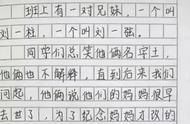 班上有一对兄妹，一个叫
刘一杜，一个叫刘一强。
同学们总笑他俩名字土，
他俩也不解释，直到后来我们
问起，他俩说他们的妈妈很早
去世了，为了纪念妈妈才改的